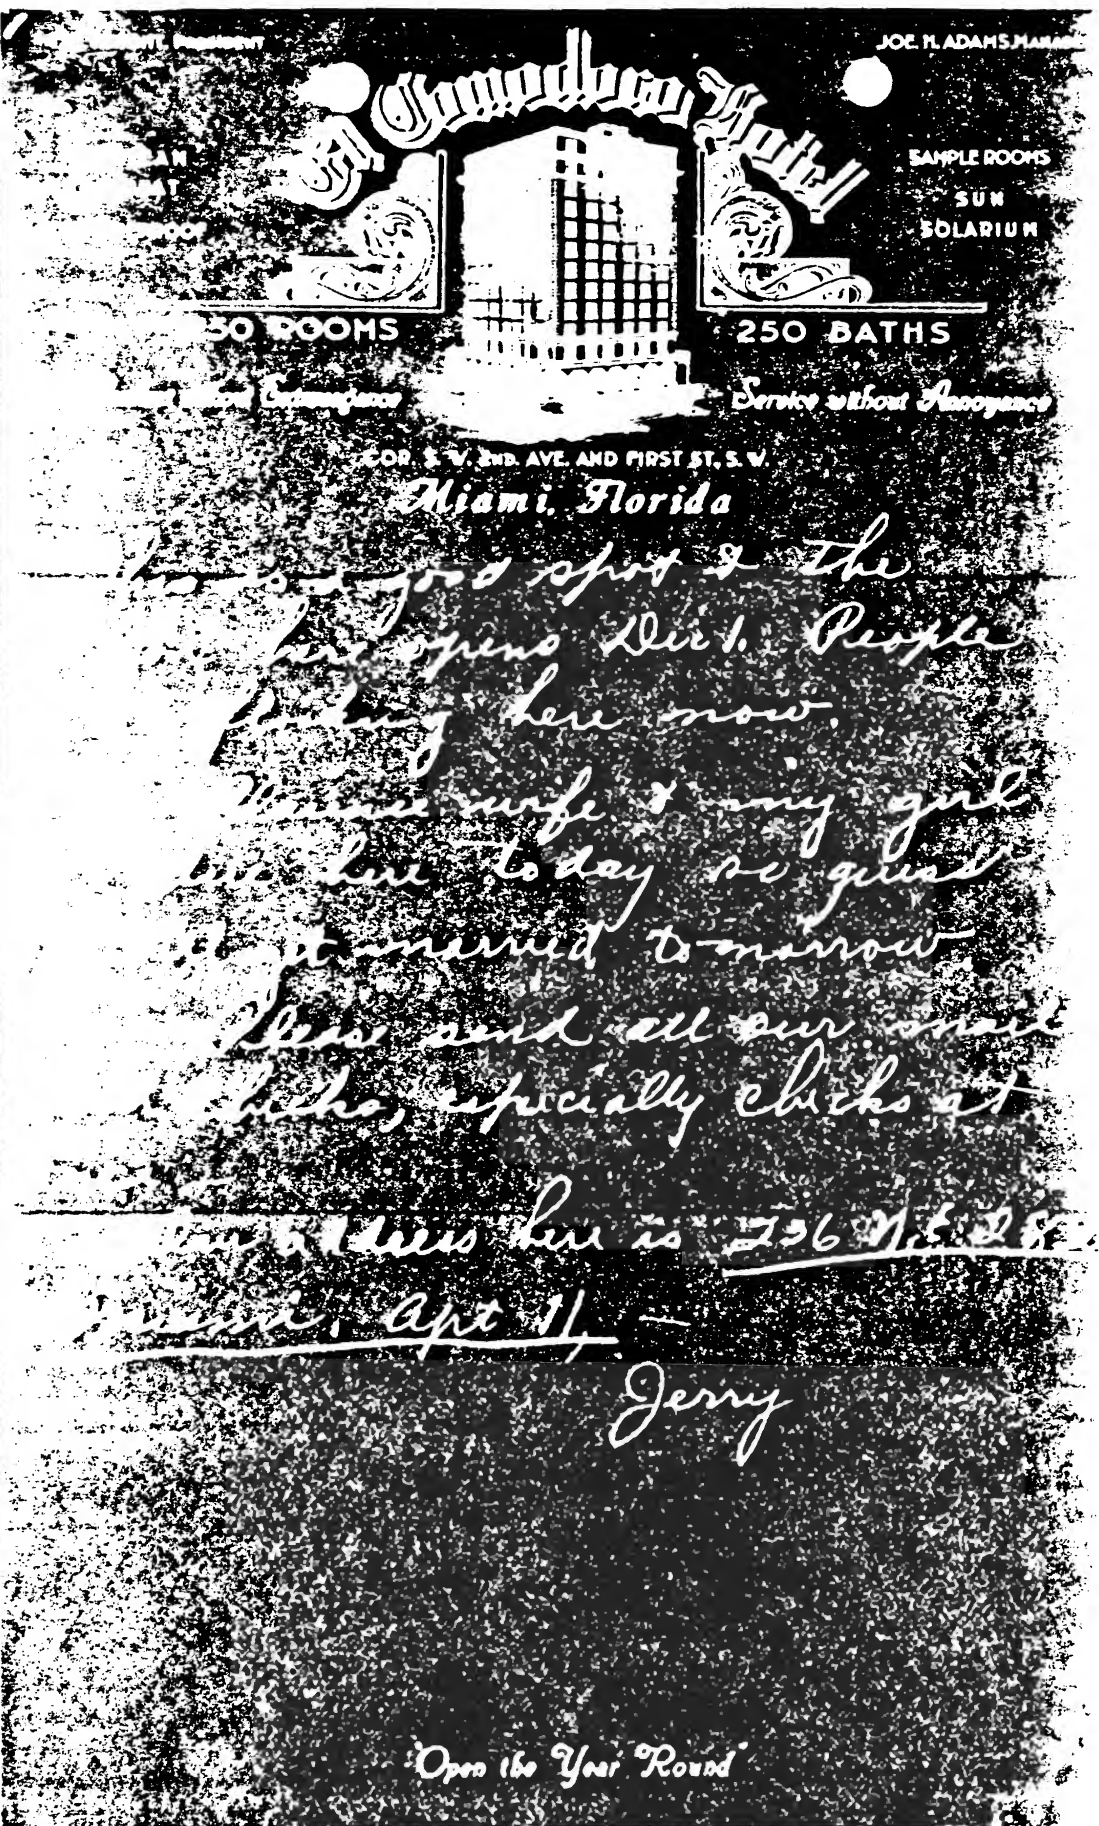 JOE H. ADAMS, MANA
El Comodoro Hotel
SAMPLE ROOMS
SUN
SOLARIUM
50 ROOMS
250 BATHS
Extravagance
Service without Annoyance
COR. S. W. 2ND. AVE. AND FIRST ST. S. W.
Miami, Florida
is a good spot & the
here opens Dec 1. People
here now.
wife & my girl
here today so guess
get married tomorrow
Please send all our mail
especially checks at
address here is 236 N.E. 2
Miami. Apt 11 —
Jerry
"Open the Year Round"